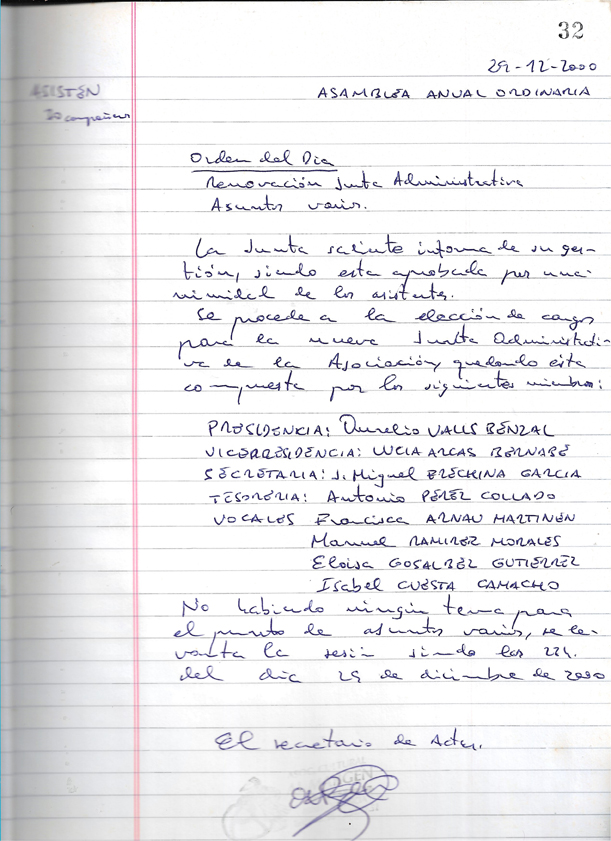 32
29-12-2000
ASISTEN
ASAMBLEA ANUAL ORDINARIA
20 compañeros
Orden del Dia
Renovación Junta Administrativa
Asuntos varios.
La Junta saliente informa de su ges-
tión, siendo esta aprobada por una-
nimidad de los asistentes.
Se procede a la elección de cargos
para la nueva Junta Administrati-
va de la Asociación, quedando ésta
compuesta por los siguientes miembros:
PRESIDENCIA: Aurelio VALLS BENZAL
VICEPRESIDENCIA: LUCIA ARCAS BERNABÉ
SECRETARIA: J. Miguel BRECHINA GARCIA
TESORERIA: Antonio PÉREZ COLLADO
VOCALES Francisca ARNAU MARTINEN
Manuel RAMIREZ MORALES
Eloisa GOSALBEZ GUTIÉRREZ
Isabel CUESTA CAMACHO
No habiendo ningún tema para
el punto de asuntos varios, se le-
vanta la sesión siendo las 22h.
del dia 29 de diciembre de 2000
El secretario de Actas.